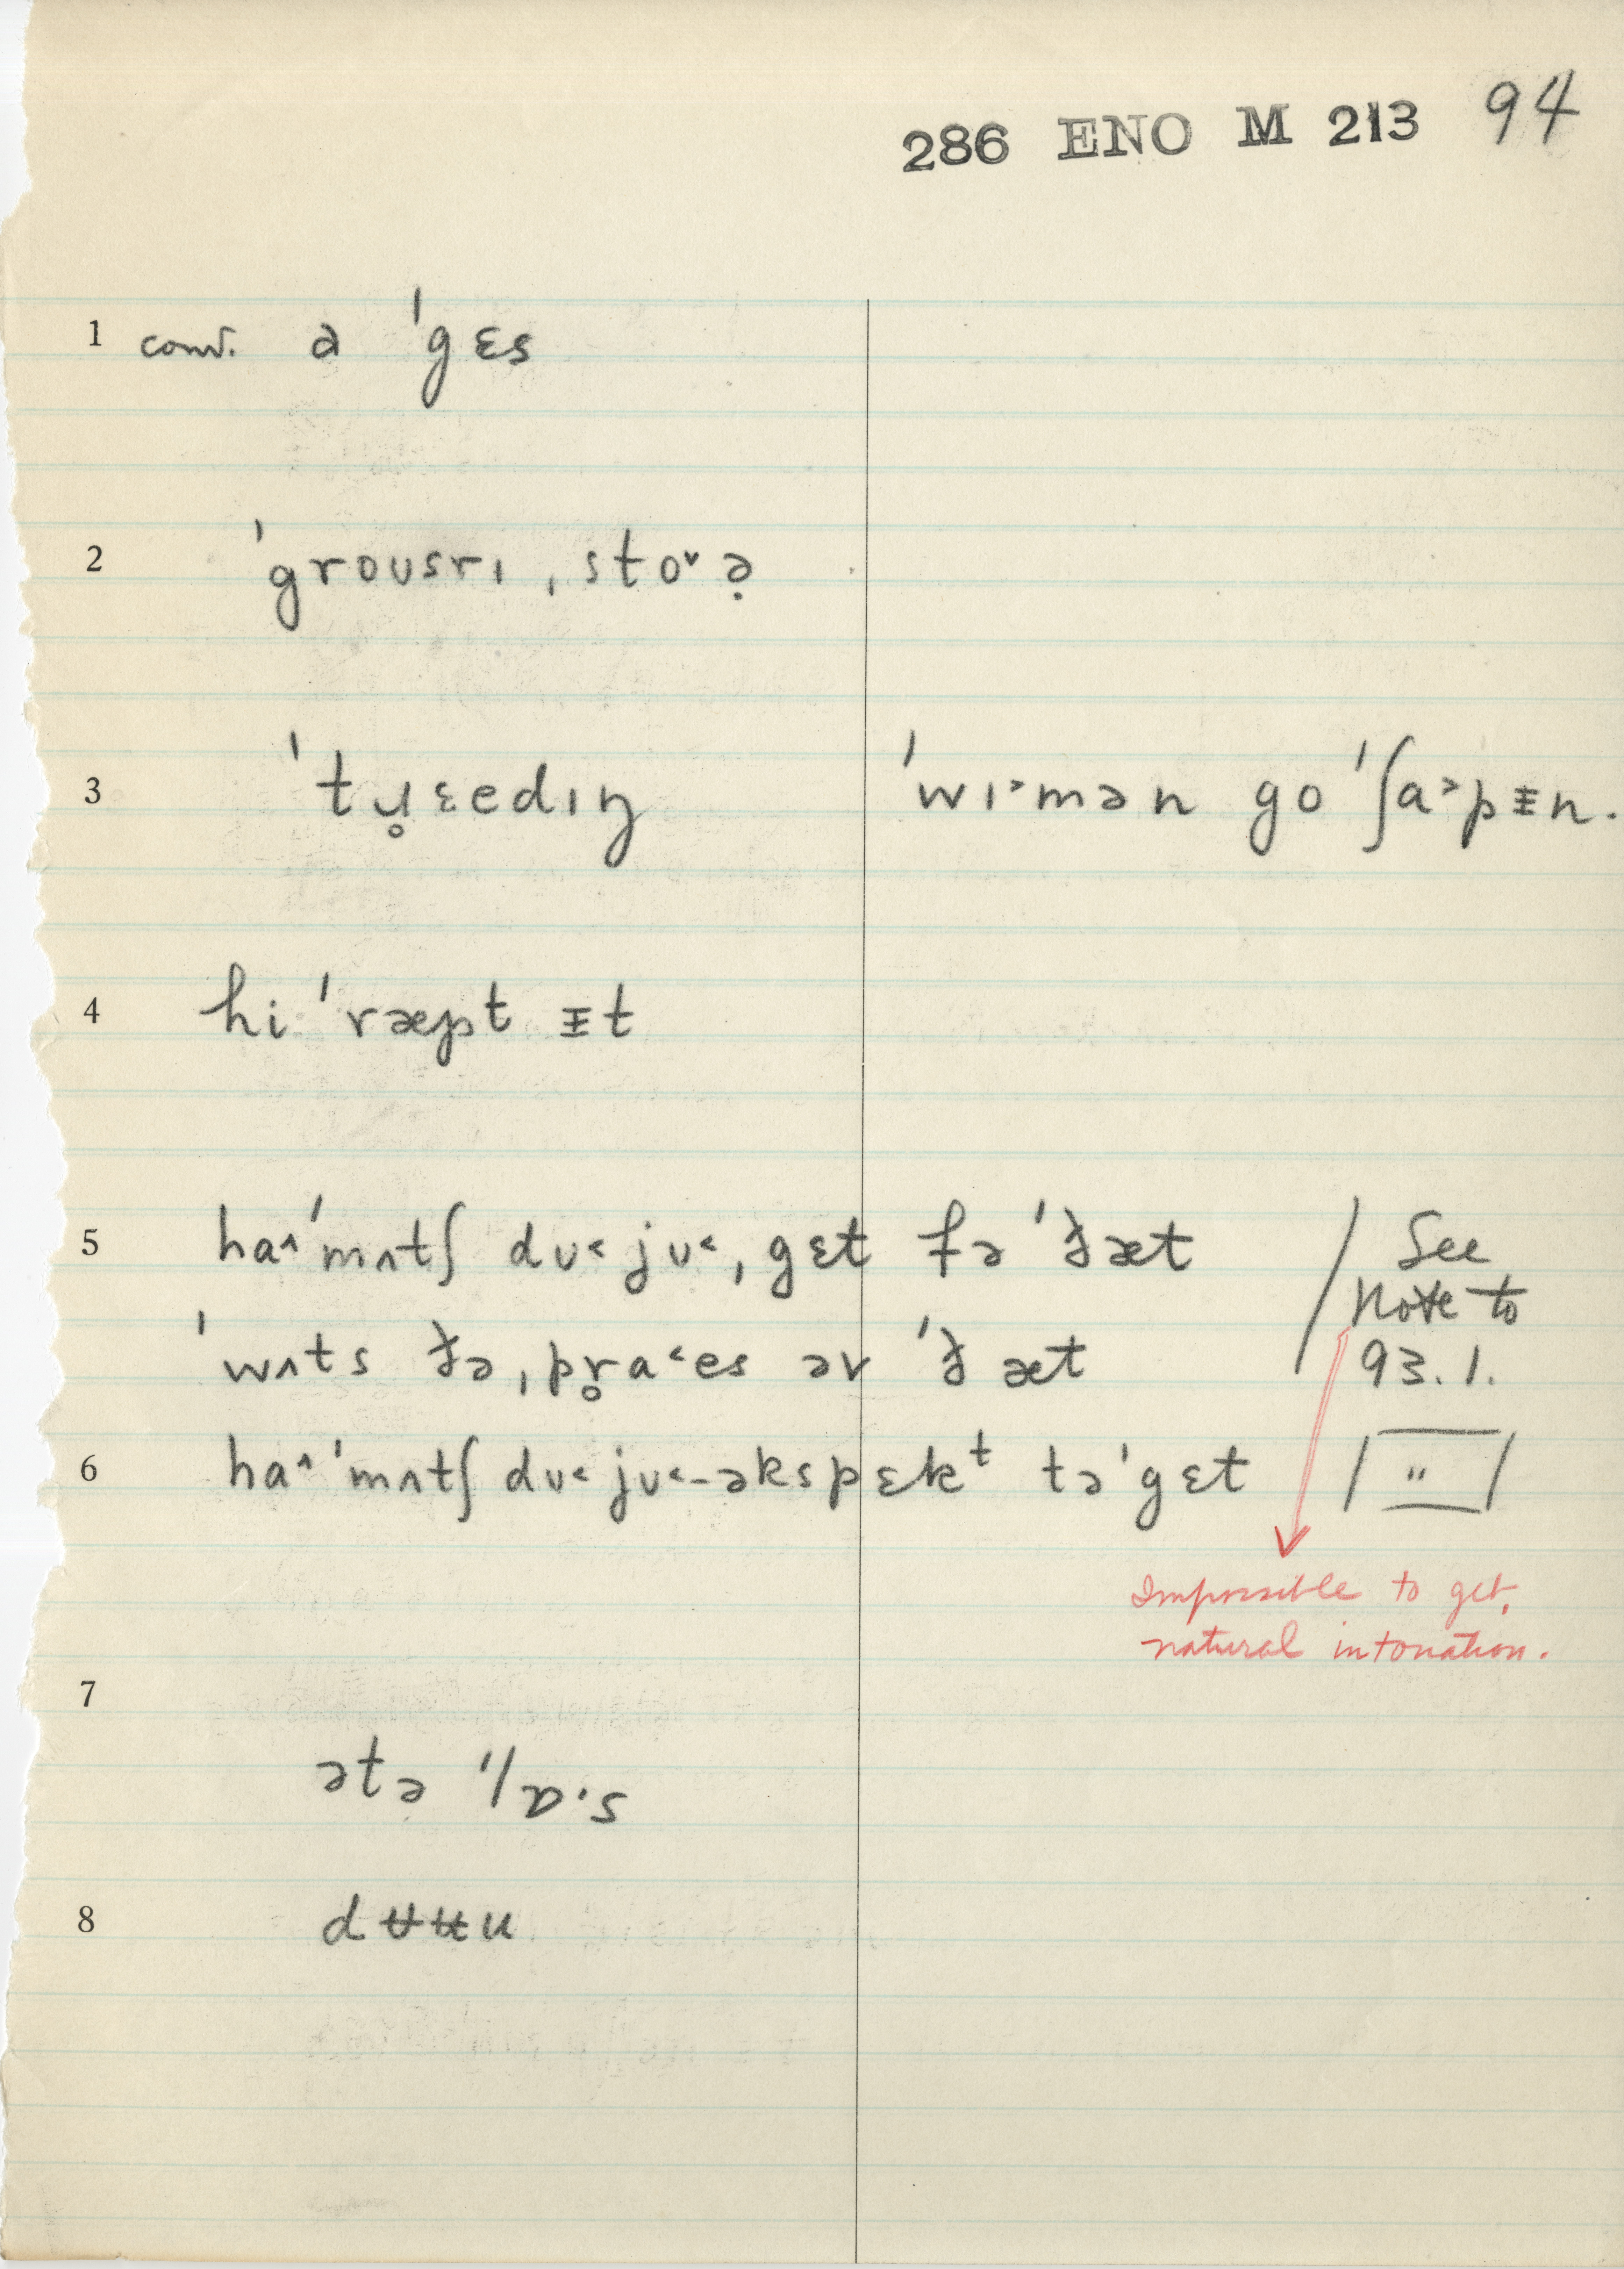 286 ENO M 213 94
1 conv. a ˈgɛs
2 ˈgroʊsrɪ ˌsto˅ə̣
3 ˈtɹ̥ɛedɪŋ ˈwɪ˃mən go ˈʃa˃pᵻn.
4 hi ˈræpt ᵻt
5 ha˄ ˈmʌtʃ dʊ˂ jʊ˂ ˌgɛt fə ˈðæt / See
Note to
ˈwʌts ðə ˌpr̥a˂es əv ˈðæt 93.1.
6 ha˄ ˈmʌtʃ dʊ˂ jʊ˂-əkspɛkᵗ tə ˈgɛt / " /
Impossible to get
natural intonation.
7
ətə
8 dʉʉu